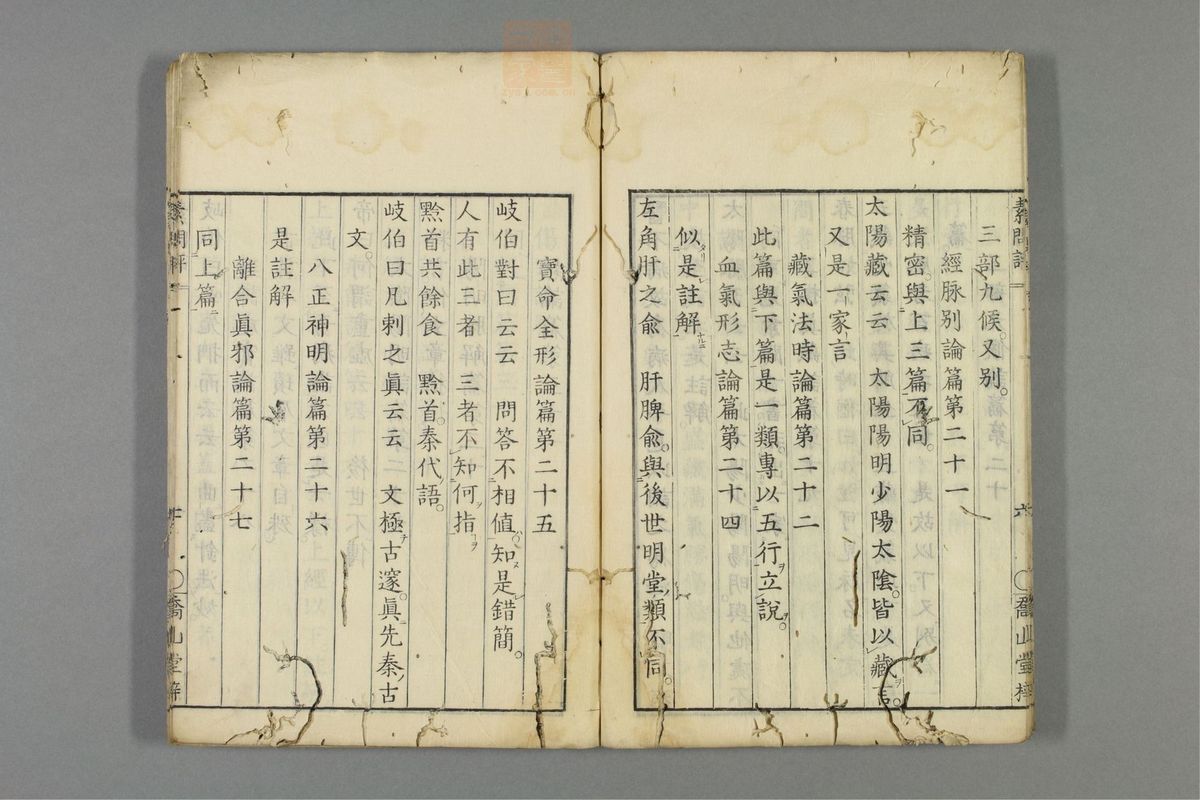 素問評
三部九候。又別。
經脉別論篇第二十一
精密。與上三篇不同。
太陽藏云云 太陽陽明少陽太陰。皆以藏言。
又是一家言
藏氣法時論篇第二十二
此篇與下篇是一類。專以五行立說。
血氣形志論篇第二十四
似是註解
左角肝之兪 肝脾兪。與後世明堂類不同。
六 〇喬山堂梓
寶命全形論篇第二十五
岐伯對曰云云 問答不相值。知是錯簡。
人有此三者 三者不知何指
黔首共餘食 黔首。秦代語。
岐伯曰凡刺之眞云云 文極古邃。眞先秦古
文。
八正神明論篇第二十六
是註解
離合眞邪論篇第二十七
同上篇
素問評
〇喬山堂梓